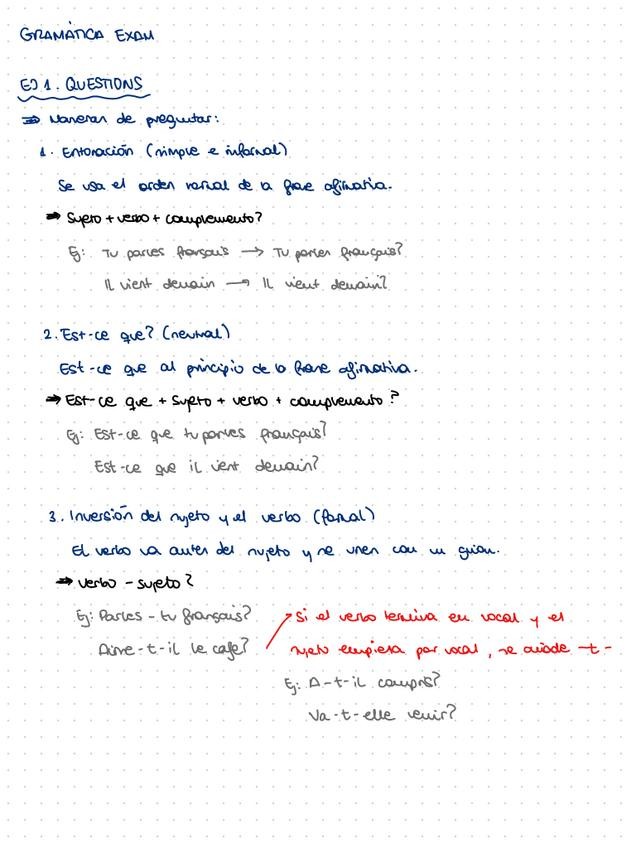 GRAMÀTICA EXAM
EJ 1. QUESTIONS
⇒ Maneras de preguntar:
1. Entonación (simple e informal)
Se usa el orden normal de la frase afirmativa.
→ Sujeto + verbo + complemento?
Ej: Tu parles français → Tu parles français?
Il vient demain → Il vient demain?
2. Est-ce que? (neutral)
Est-ce que al principio de la frase afirmativa.
→ Est-ce que + sujeto + verbo + complemento?
Ej: Est-ce que tu parles français?
Est-ce que il vient demain?
3. Inversión del sujeto y el verbo (formal)
El verbo va antes del sujeto y se unen con un guion.
→ Verbo - sujeto?
Ej: Parles - tu français?
Aime-t-il le cafe?
Si el verbo termina en vocal y el
sujeto empieza por vocal, se añade -t-
Ej: A-t-il compris?
Va-t-elle venir?